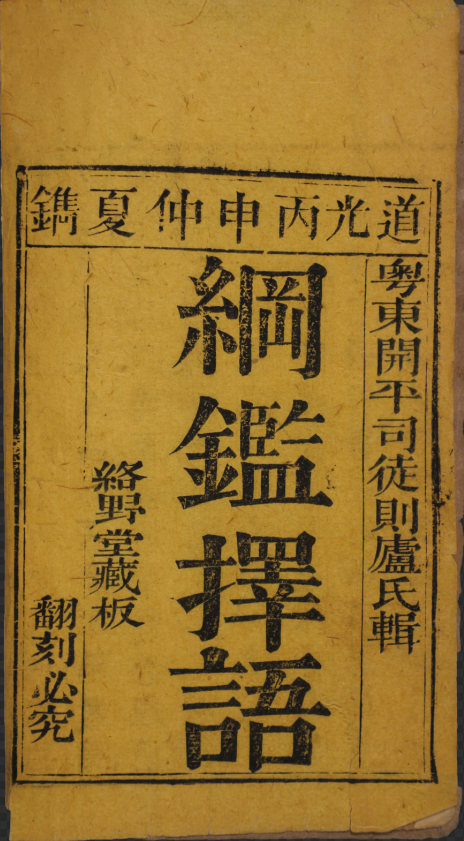 道光丙申仲夏鐫
粵東開平司徒則廬氏輯
綱鑑擇語
絡野堂藏板
翻刻必究